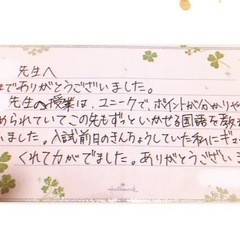 先生へ
でありがとうございました。
先生の授業は、ユニークで、ポイントが分かりや
められていてこの先もずっといかせる国語を教
いました。入試前日のきんちょうしていた私にギュー
くれて力がでました。ありがとうござい
Hallmark